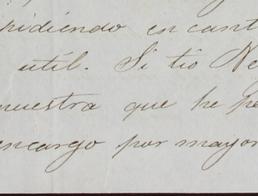 pidiendo en cant
util. Si tio Ne
muestra que he pe
encargo por mayor